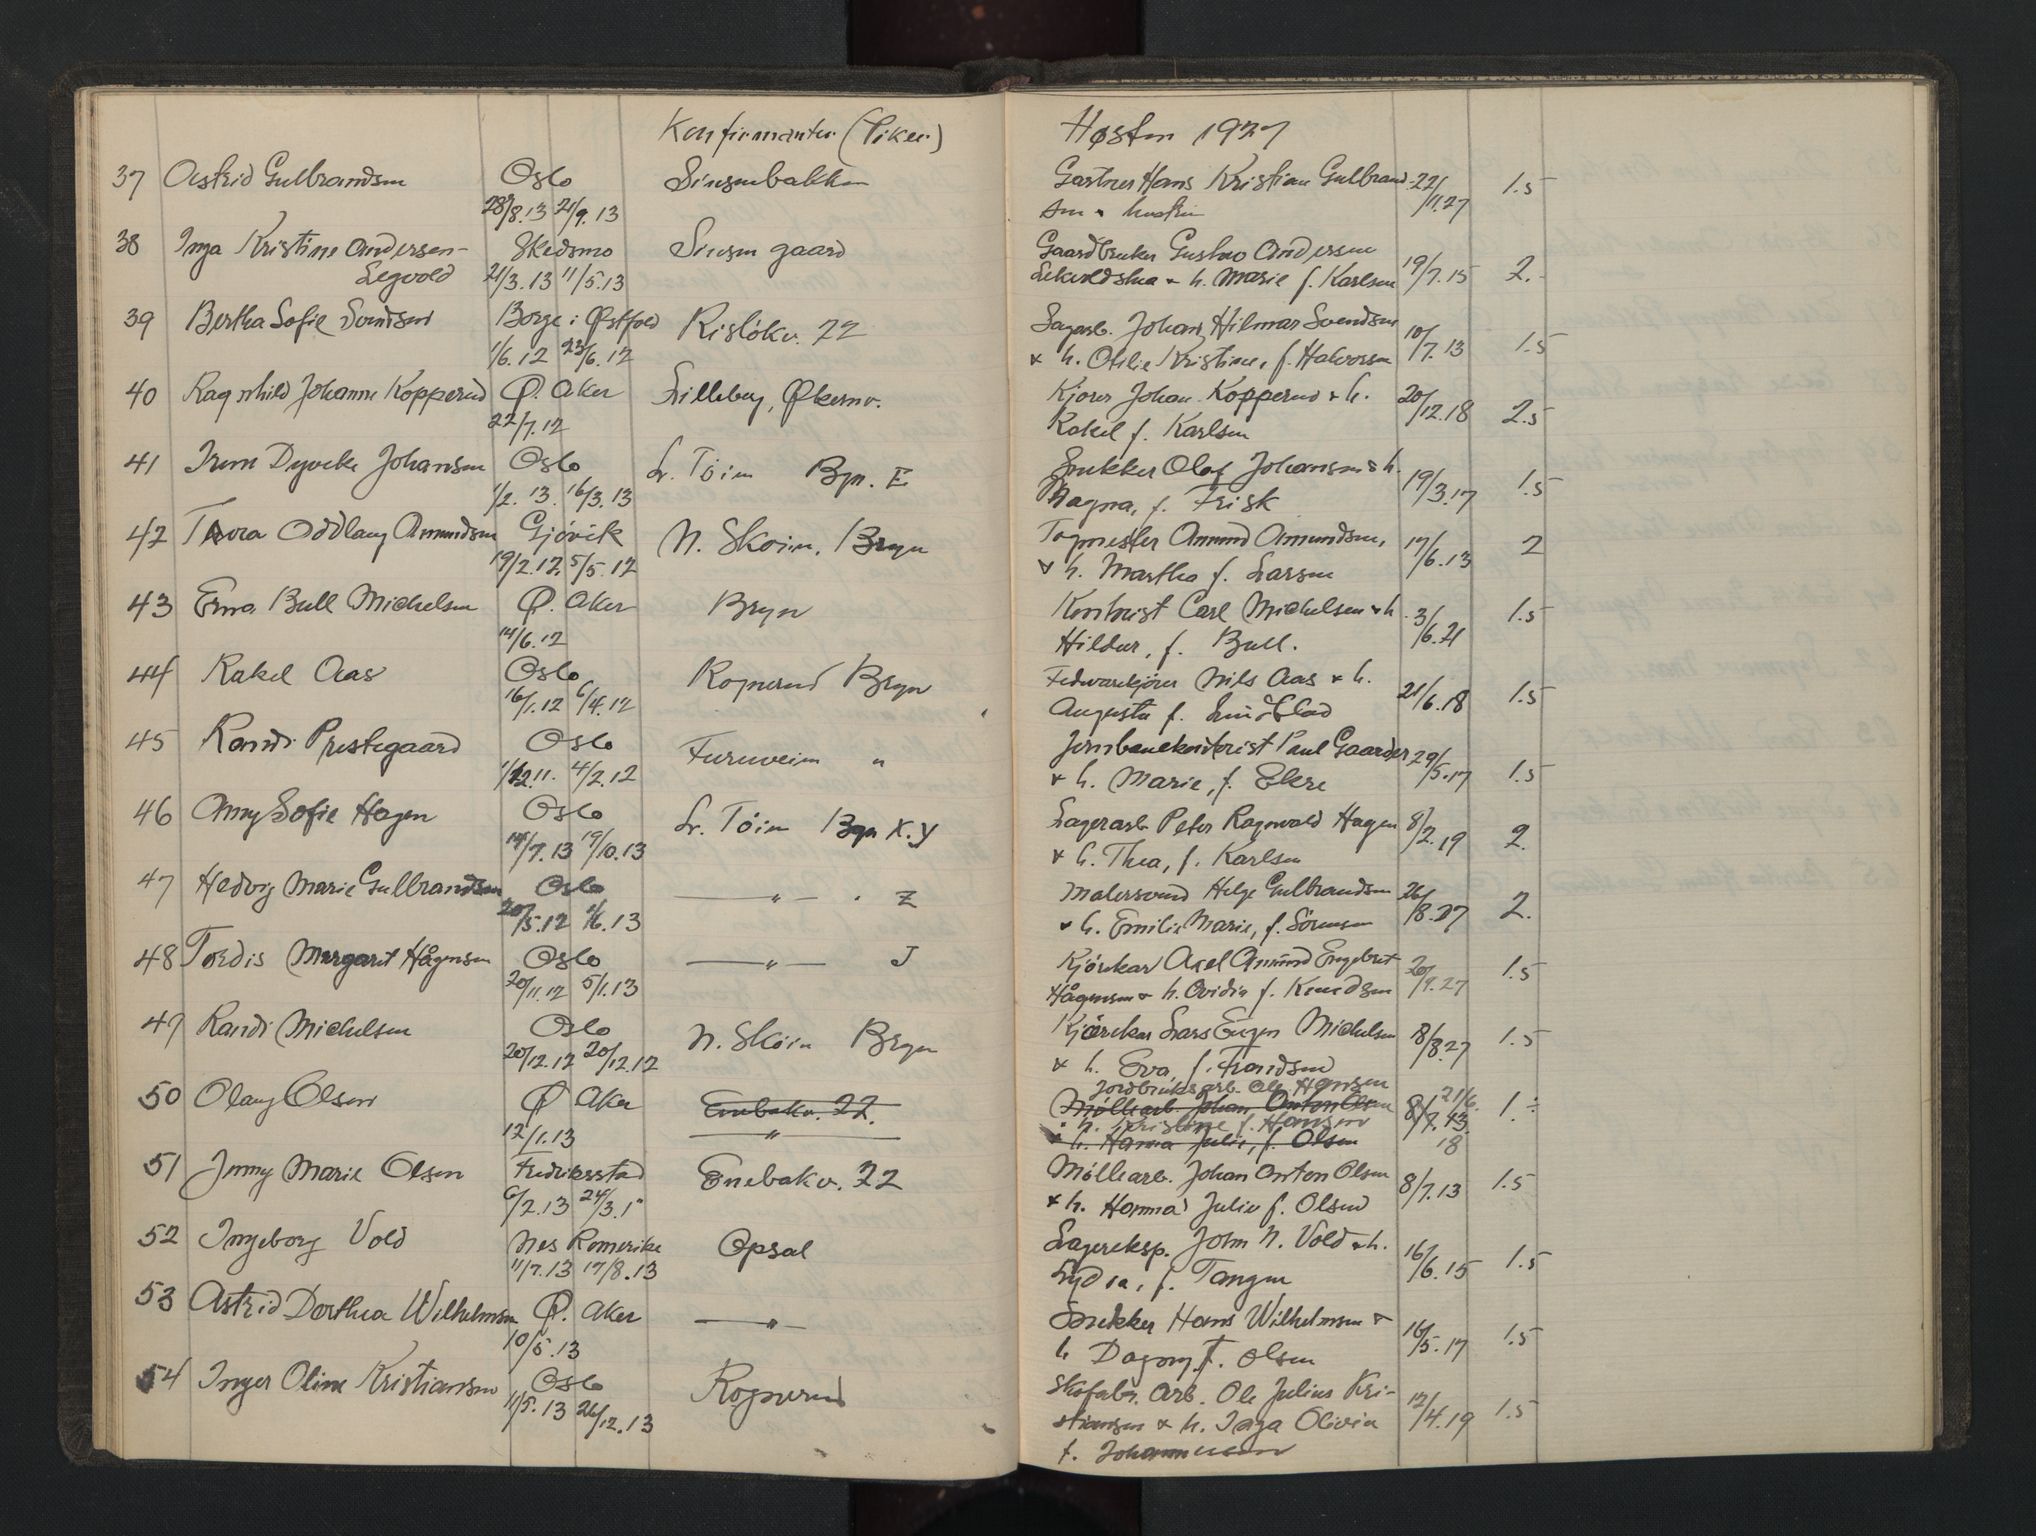 Konfirmanter (Piker) Høsten 1927
37 Astrid Gulbrandsen Oslo Sinsenbakken Gartner Hans Kristian Gulbrand- 22/ 1.5
28/8.13 21/9.13 sen & hustru 11.27
38 Inga Kristine Andersen- Skedsmo Sinsen gaard Gaardbruker Gustav Andersen
Legvold 21/3.13 11/5.13 & h. Marie f. Karlsen 19/7.15 2.
39 Bertha Sofie Svendsen Borge i Østfold Risløkv. 22 Sagarb. Johan Hilmar Svendsen 10/7.13 1.5
1/6.12 23/6.12 & h. Otilie Kristine, f. Halvorsen
40 Ragnhild Johanne Kopperud Ø. Aker Lilleberg, Økernv. Kjører Johan Kopperud & h. 20/12.18 2.5
22/7.12 Rakel f. Karlsen
41 Irene Dyveke Johansen Oslo Lr. Töien Bryn. E Snekker Olaf Johansen & h. 19/3.17 1.5
1/2.13. 16/3.13 Magna, f. Frisk
42 Thora Oddlaug Amundsen Gjövik N. Skøien, Bryn Togmester Amund Amundsen, 17/6.13 2
19/2.12 5/5.12 & h. Martha f. Larsen
43 Erna Bull Michelsen Ø. Aker Bryn Kontorist Carl Michelsen & h. 3/6.21 1.5
14/6.12 Hildur, f. Bull.
44 Rakel Aas Oslo Rognerud Bryn Nils Aas & h. 21/6.18 1.5
16/1.12 6/4.12 Augusta f. Lindblad
45 Randi Prestegaard Oslo Furuveien " Jernbanekontorist Paul Gaarder 29/5.17 1.5
1/12.11. 4/2.12 & h. Marie, f. Ekre
46 Anny Sofie Hagen Oslo Lr. Töien Bryn X.Y Lagerarb Peter Ragnvald Hagen 8/2.19 2.
14/7.13 19/10.13 & h. Thea, f. Karlsen
47 Hedvig Marie Gulbrandsen Oslo — " — Z Malersvend Helge Gulbrandsen 26/8.27 2.
20/5.12 1/6.13 & h. Emilie Marie, f. Sörensen
48 Tordis Margaret Hågensen Oslo — " — J Kjörekar Axel Amund Engebret 20/9.27 1.5
20/11.12 5/1.13 Hågensen & h. Ovidia f. Knudsen
47 Randi Michelsen Oslo N. Skøien Bryn Kjörekar Lars Eugen Michelsen 18/8.27 1.5
20/12.12 20/12.12 & h. Eva, f. Frandsen
Jordbruksarb. Ole Hansen
50 Olaug Olsen Ø Aker Enebakv. 22. Møllearb. Johan Anton Olsen 8/7.13 21/6. 1.÷
& h. Kristine f. Hansen
12/1.13 — " — & h. Hanna Julie, f. Olsen 18
51 Jenny Marie Olsen Fredriksstad Enebakv. 22 Møllearb. Johan Anton Olsen 8/7.13 1.5
6/2.13 24/3.1" & h. Hanna Julie f. Olsen
52 Ingeborg Vold Nes Romerike Opsal Lagereksp. John N. Vold & h. 16/6.15 1.5
11/7.13 17/8.13 Lydia, f. Tangen
53 Astrid Dorthea Wilhelmsen Ø. Aker — " — Snekker Hans Wilhelmsen & 16/5.17 1.5
10/5.13 h Dagny f. Olsen
54 Inger Oline Kristiansen Oslo Rognerud Skofabr. Arb. Ole Julius Kri- 12/4.19 1.5
11/5.13 26/12.13 stiansen & h. Inga Olivia
f. Johannessen